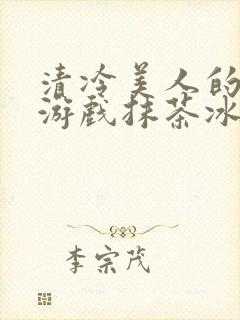 清冷美人的
游戏抹茶冰
李宗茂